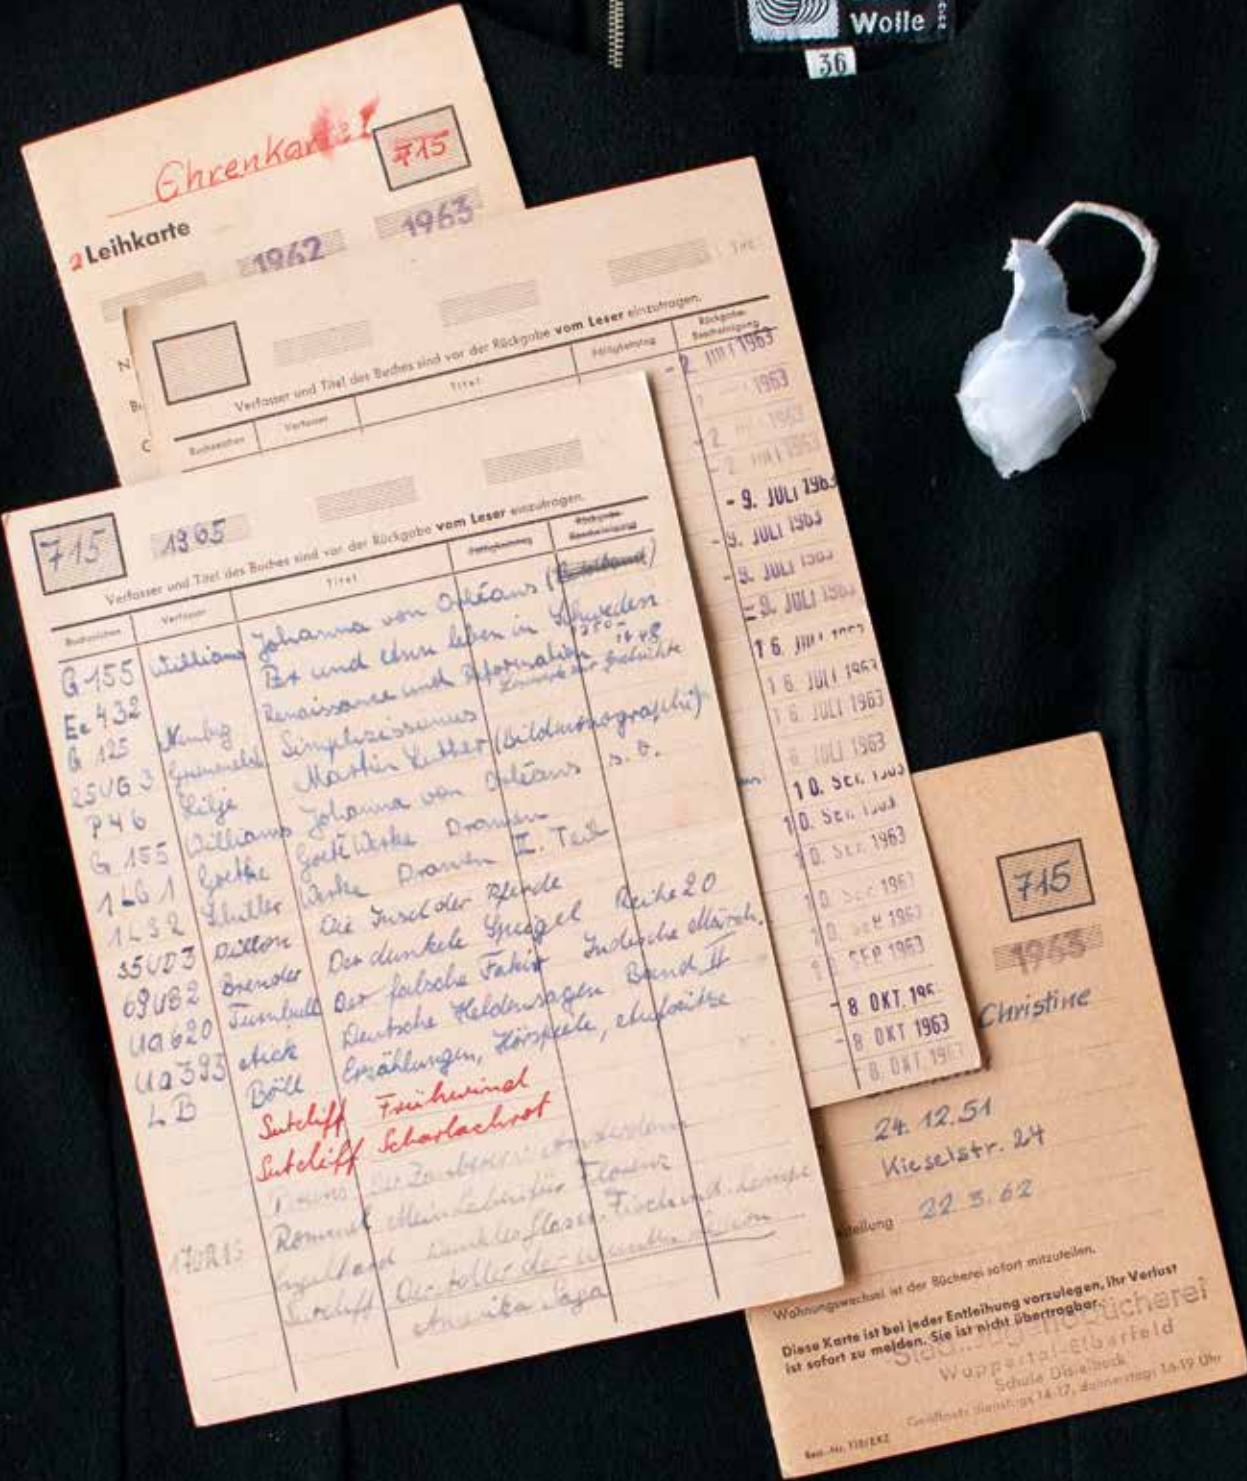 Wolle
36
Ehrenkarte!
715
2 Leihkarte
1962
1963
Verfasser und Titel des Buches sind vor der Rückgabe vom Leser einzutragen.
Buchzeichen Verfasser Titel Fälligkeitstag Rückgabe-Bescheinigung
- 2 JULI 1963
1963
- 2 1963
- 2 JULI 1963
- 9. JULI 1963
- 9. JULI 1963
- 9. JULI 1963
- 9. JULI 1963
16. JULI 1963
16. JULI 1963
16. JULI 1963
6 JULI 1963
10. SEP. 1963
10. SEP. 1963
10. SEP. 1963
10 SEP 1963
10. SEP 1963
10 SEP 1963
- 8 OKT. 196
- 8 OKT 1963
8. OKT 1963
715
1965
Verfasser und Titel des Buches sind vor der Rückgabe vom Leser einzutragen.
Buchzeichen Verfasser Titel Fälligkeitstag Rückgabe-Bescheinigung
G 155 Williams Johanna von Orléans
Ee 432 Per und Ann leben in Schweden
G 125 Renaissance und Reformation
25UG 3 Simplizissimus
P46 Lilje Martin Luther (Bildmonographie)
G 155 Williams Johanna von Orléans s. o.
1LG 1 Goethe Werke Dramen
1LS 2 Schiller Werke Dramen II. Teil
35UD3 Dillon Die Insel der Pferde
69UB2 Brender Der dunkele Spiegel Reihe 20
Ua620 Turnbull Der falsche Fakir Indische Märch.
Ua393 Aick Deutsche Heldensagen Band II
LB Böll Erzählungen, Hörspiele, Aufsätze
Sutcliff Frühwind
Sutcliff Scharlachrot
Rommel
Sutcliff
Amerika Saga
715
1963
Christine
24.12.51
Kieselstr. 24
stellung 22.3.62
Wohnungswechsel ist der Bücherei sofort mitzuteilen.
Diese Karte ist bei jeder Entleihung vorzulegen, ihr Verlust
ist sofort zu melden. Sie ist nicht übertragbar.
Wuppertal-Elberfeld
Schule Distelbeck
Geöffnet: dienstags 14-17, donnerstags 16-19 Uhr